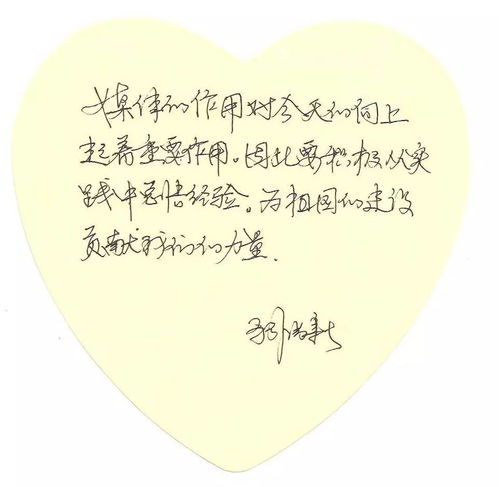 媒体的作用对今天的向上
起着重要作用。因此要积极从实
践中感悟经验。为祖国的建设
贡献我们的力量.